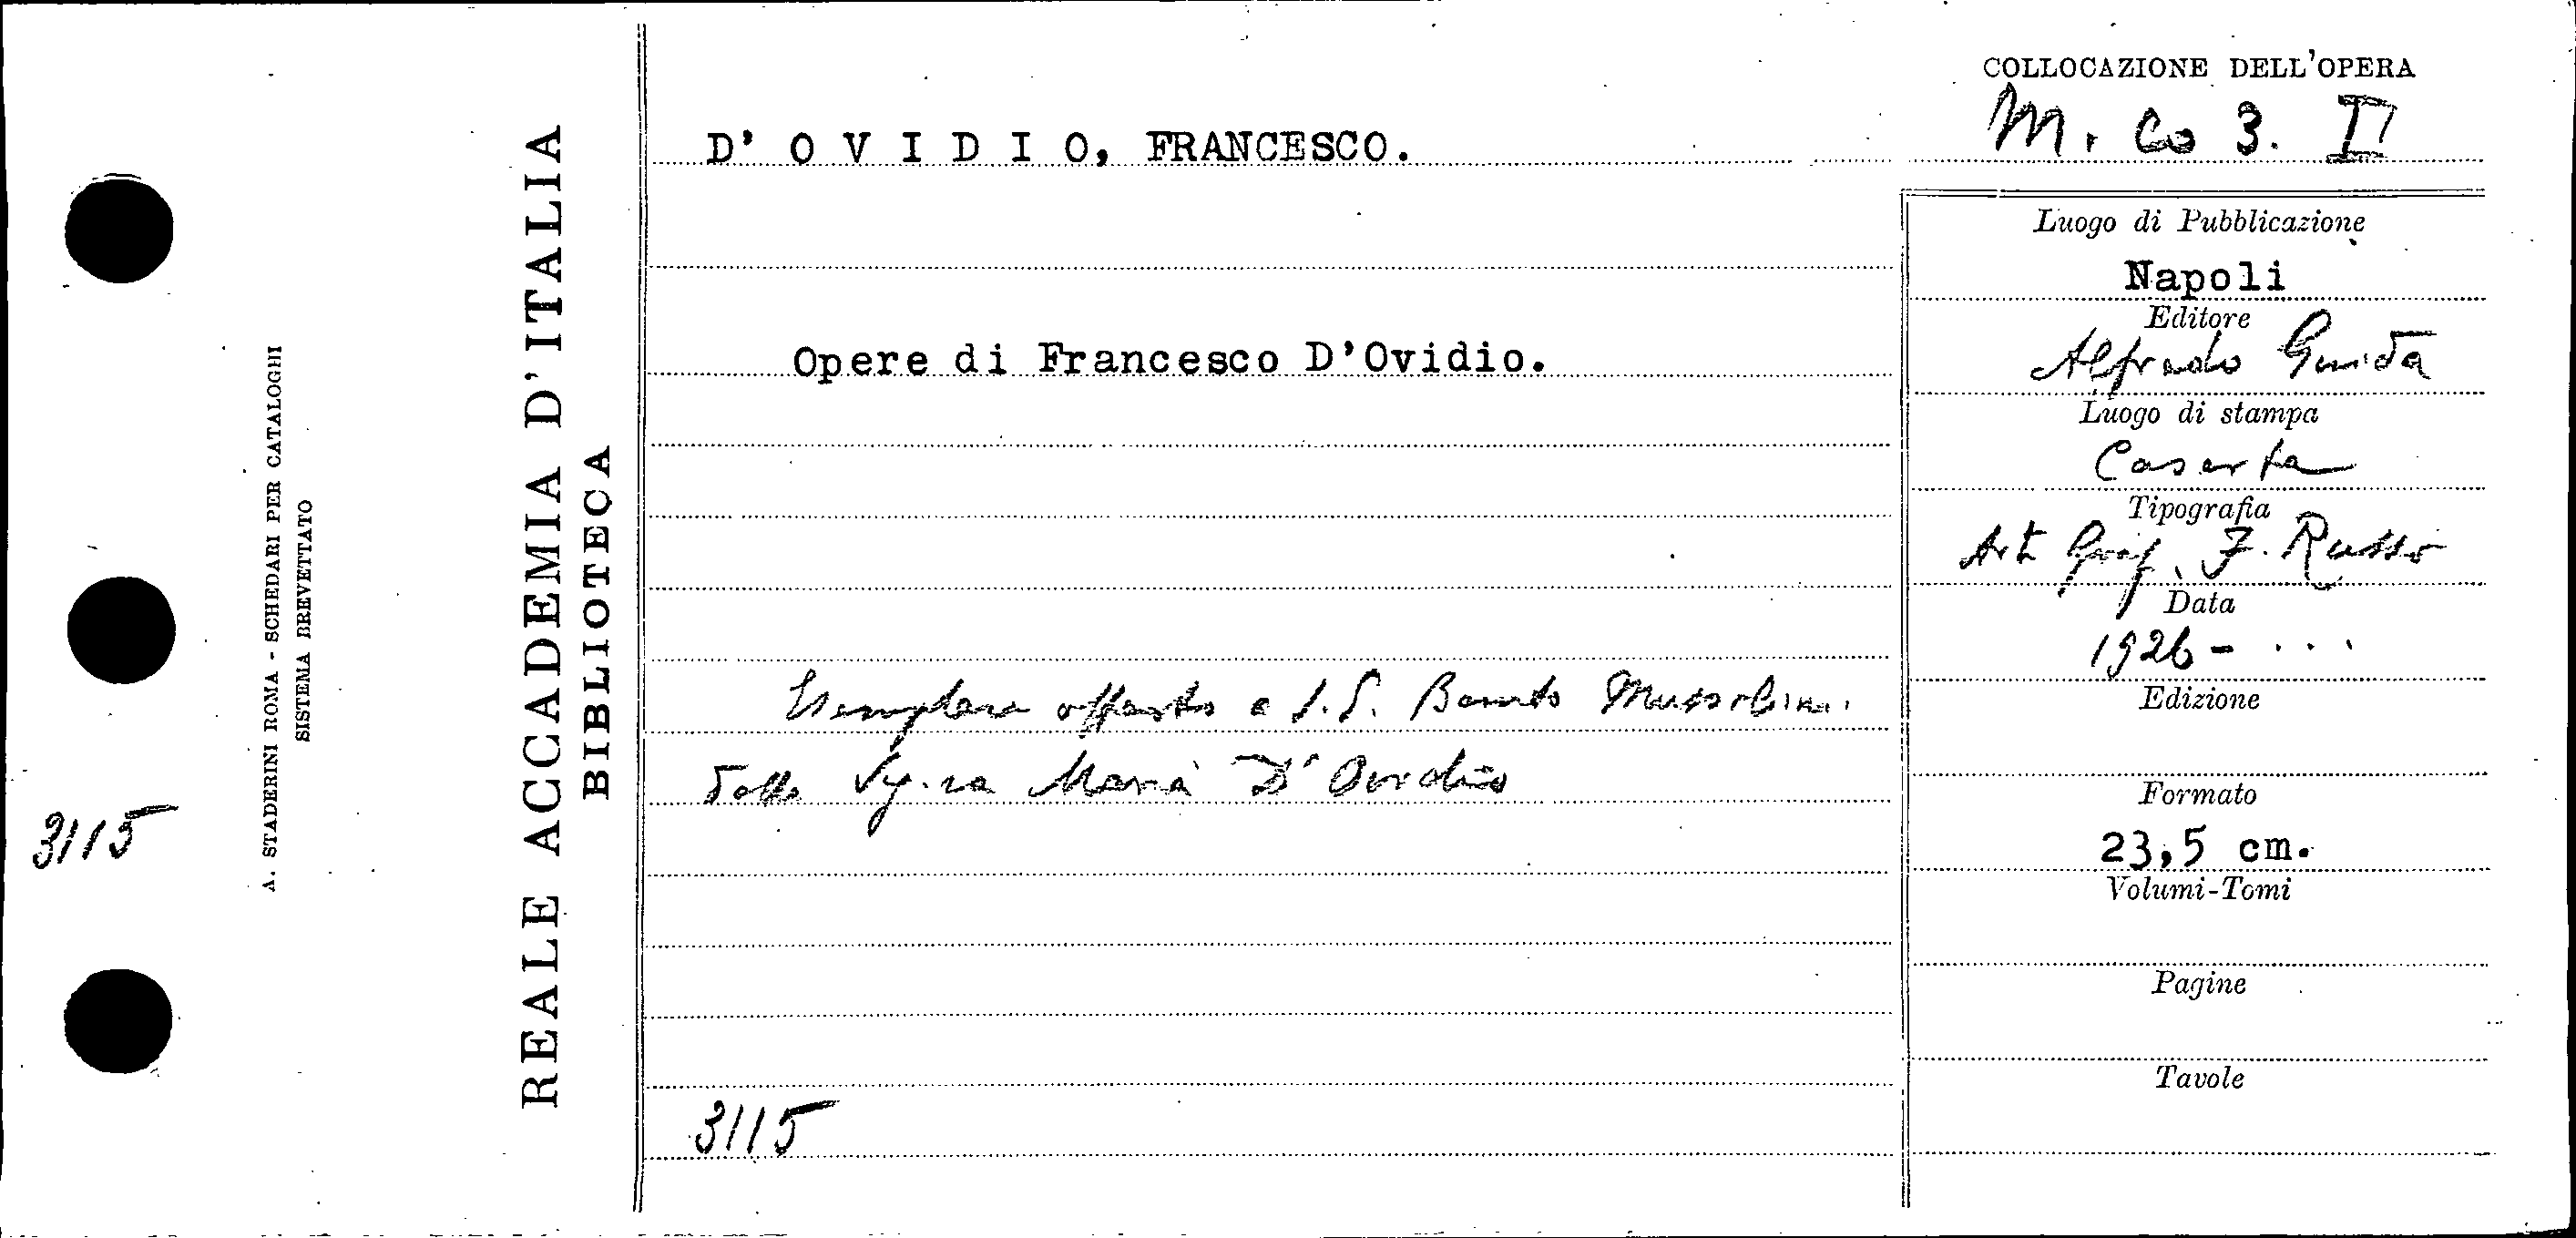 COLLOCAZIONE DELL'OPERA
M. Co 3. II
D' O V I D I O, FRANCESCO.
Opere di Francesco D'Ovidio.
Esemplare offerto a S. E. Benito Mussolini
dalla Sig.ra Maria D'Ovidio
3115
Luogo di Pubblicazione
Napoli
Editore
Alfredo Guida
Luogo di stampa
Caserta
Tipografia
Arti Graf. F. Russo
Data
1926 - . . .
Edizione
Formato
23,5 cm.
Volumi-Tomi
Pagine
Tavole
REALE ACCADEMIA D'ITALIA
BIBLIOTECA
A. STADERINI ROMA - SCHEDARI PER CATALOGHI
SISTEMA BREVETTATO
3115